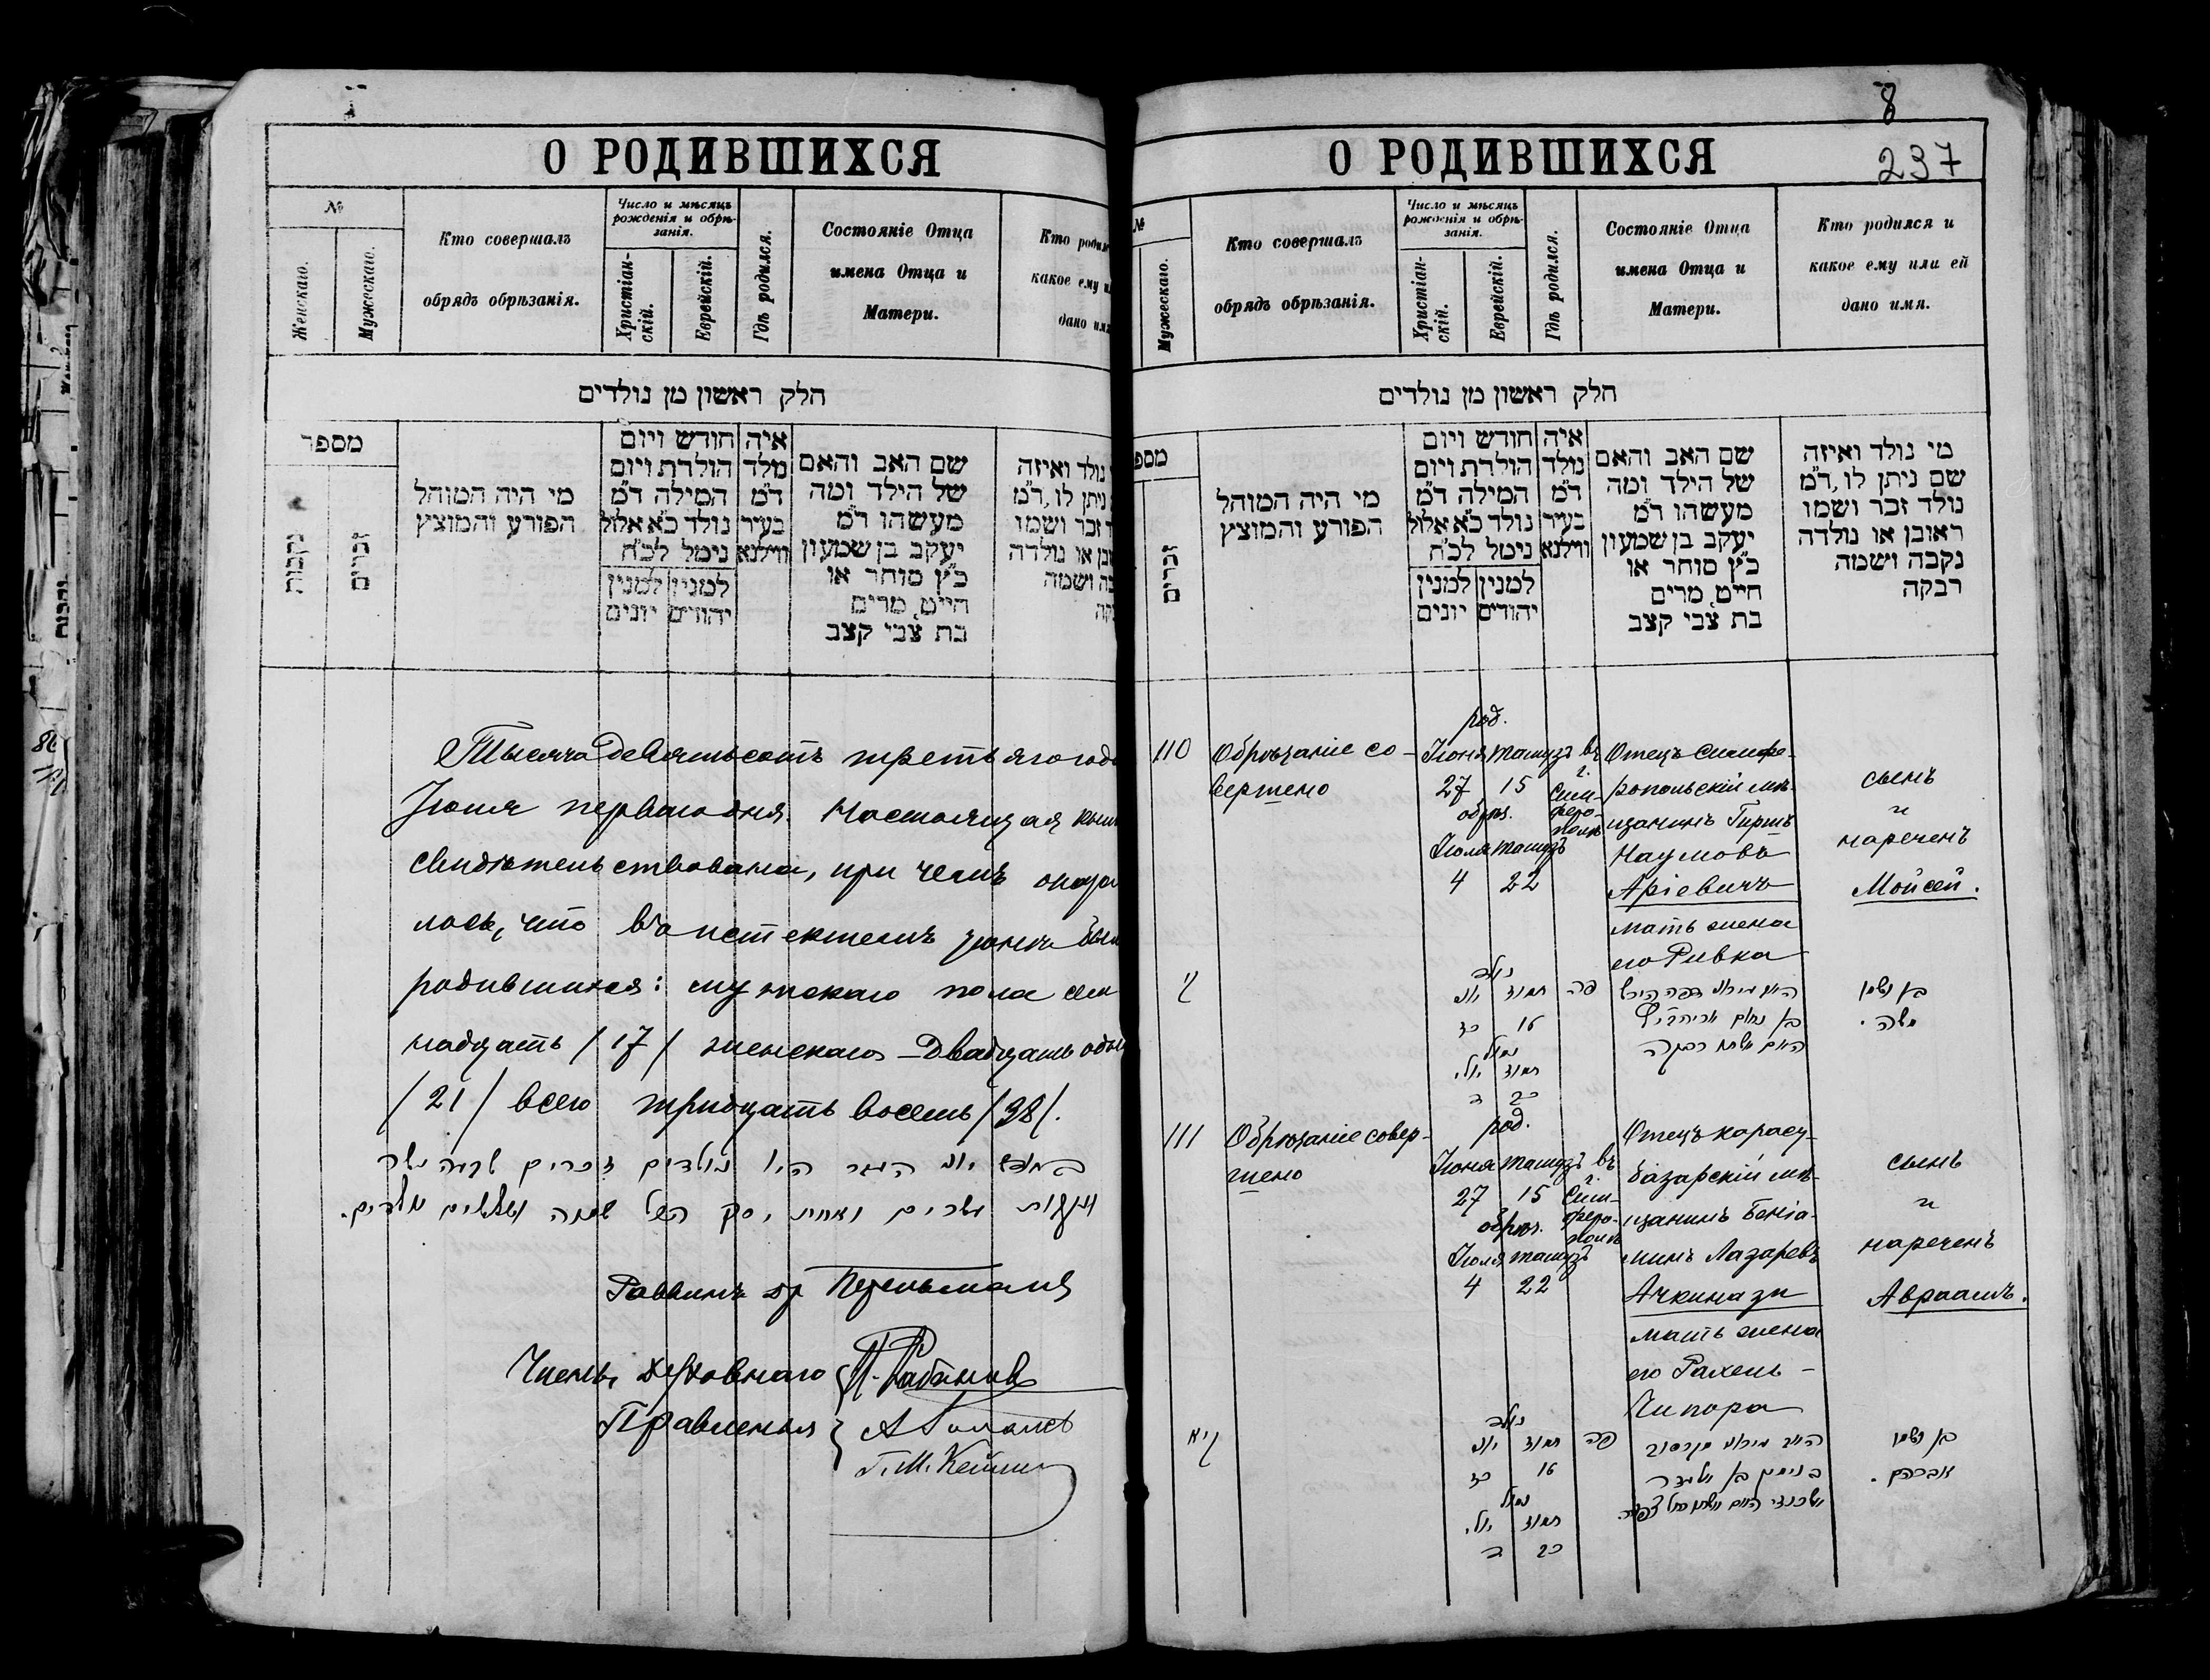 О РОДИВШИХСЯ
№
Женскаго.
Мужескаго.
Кто совершалъ
обрядъ обрѣзанія.
Число и мѣсяцъ
рожденія и обрѣ-
занія.
Христіан-
скій.
Еврейскій.
Гдѣ родился.
Состояніе Отца
имена Отца и
Матери.
Кто
какое ему
дано
חלק ראשון מן נולדים
מספר
נקבות
זכרים
מי היה המוהל
הפורע והמוצץ
חודש ויום
הולדת ויום
המילה ד״מ
נולד כ״א אלול
נימל לכ״ח
למנין למנין
יהודים יונים
איה
נולד
ד״מ
בעיר
ווילנא
שם האב והאם
של הילד ומה
מעשהו ד״מ
יעקב בן שמעון
כ״ץ סוחר או
חייט, מרים
בת צבי קצב
נולד ואיזה
ניתן לו, ד״מ
זכר ושמו
או נולדה
ושמה
Тысяча девятьсотъ третьяго
Іюля перваго дня. Настоящая
свидѣтельствована, при чемъ
лось, что въ истекшемъ Іюнѣ
родившихся: мужскаго пола
надцать /17/ женскаго – двадцать
/21/ всего тридцать восемь /38/.
היו נולדים זכרים
עשרים ואחת, סך הכל שמנה ושלשים נולדים.
Раввинъ
Члены Духовнаго
Правленія
8
О РОДИВШИХСЯ
237
№
Мужескаго.
Кто совершалъ
обрядъ обрѣзанія.
Число и мѣсяцъ
рожденія и обрѣ-
занія.
Христіан-
скій.
Еврейскій.
Гдѣ родился.
Состояніе Отца
имена Отца и
Матери.
Кто родился и
какое ему или ей
дано имя.
חלק ראשון מן נולדים
זכרים
מי היה המוהל
הפורע והמוצץ
חודש ויום
הולדת ויום
המילה ד״מ
נולד כ״א אלול
נימל לכ״ח
למנין למנין
יהודים יונים
איה
נולד
ד״מ
בעיר
ווילנא
שם האב והאם
של הילד ומה
מעשהו ד״מ
יעקב בן שמעון
כ״ץ סוחר או
חייט, מרים
בת צבי קצב
מי נולד ואיזה
שם ניתן לו, ד״מ
נולד זכר ושמו
ראובן או נולדה
נקבה ושמה
רבקה
110
Обрѣзаніе со-
вершено
род.
Іюня Тамузъ
27 15
обрѣз.
Іюля Тамузъ
4 22
въ
г.
Сим-
феро-
полѣ
Отецъ симфе-
ропольскій мѣ-
щанинъ Гиршъ
Наумовъ
Аріевичъ
мать жена
его Ривка
сынъ
и
нареченъ
Мойсей.
קי
נולד
תמוז יוני
16 כז
נמול
תמוז יולי
כ2 ד
פה
האם רבקה
משה.
111
Обрѣзаніе совер-
шено
род.
Іюня Тамузъ
27 15
обрѣз.
Іюля Тамузъ
4 22
въ
г.
Сим-
феро-
полѣ
Отецъ карасу-
базарскій мѣ-
щанинъ Беніа-
минъ Лазаревъ
Ачкинази
мать жена
его Рахель –
Ципора
сынъ
и
нареченъ
Авраамъ.
קיא
נולד
תמוז יוני
16 כז
נמול
תמוז יולי
כ2 ד
פה
אברהם.